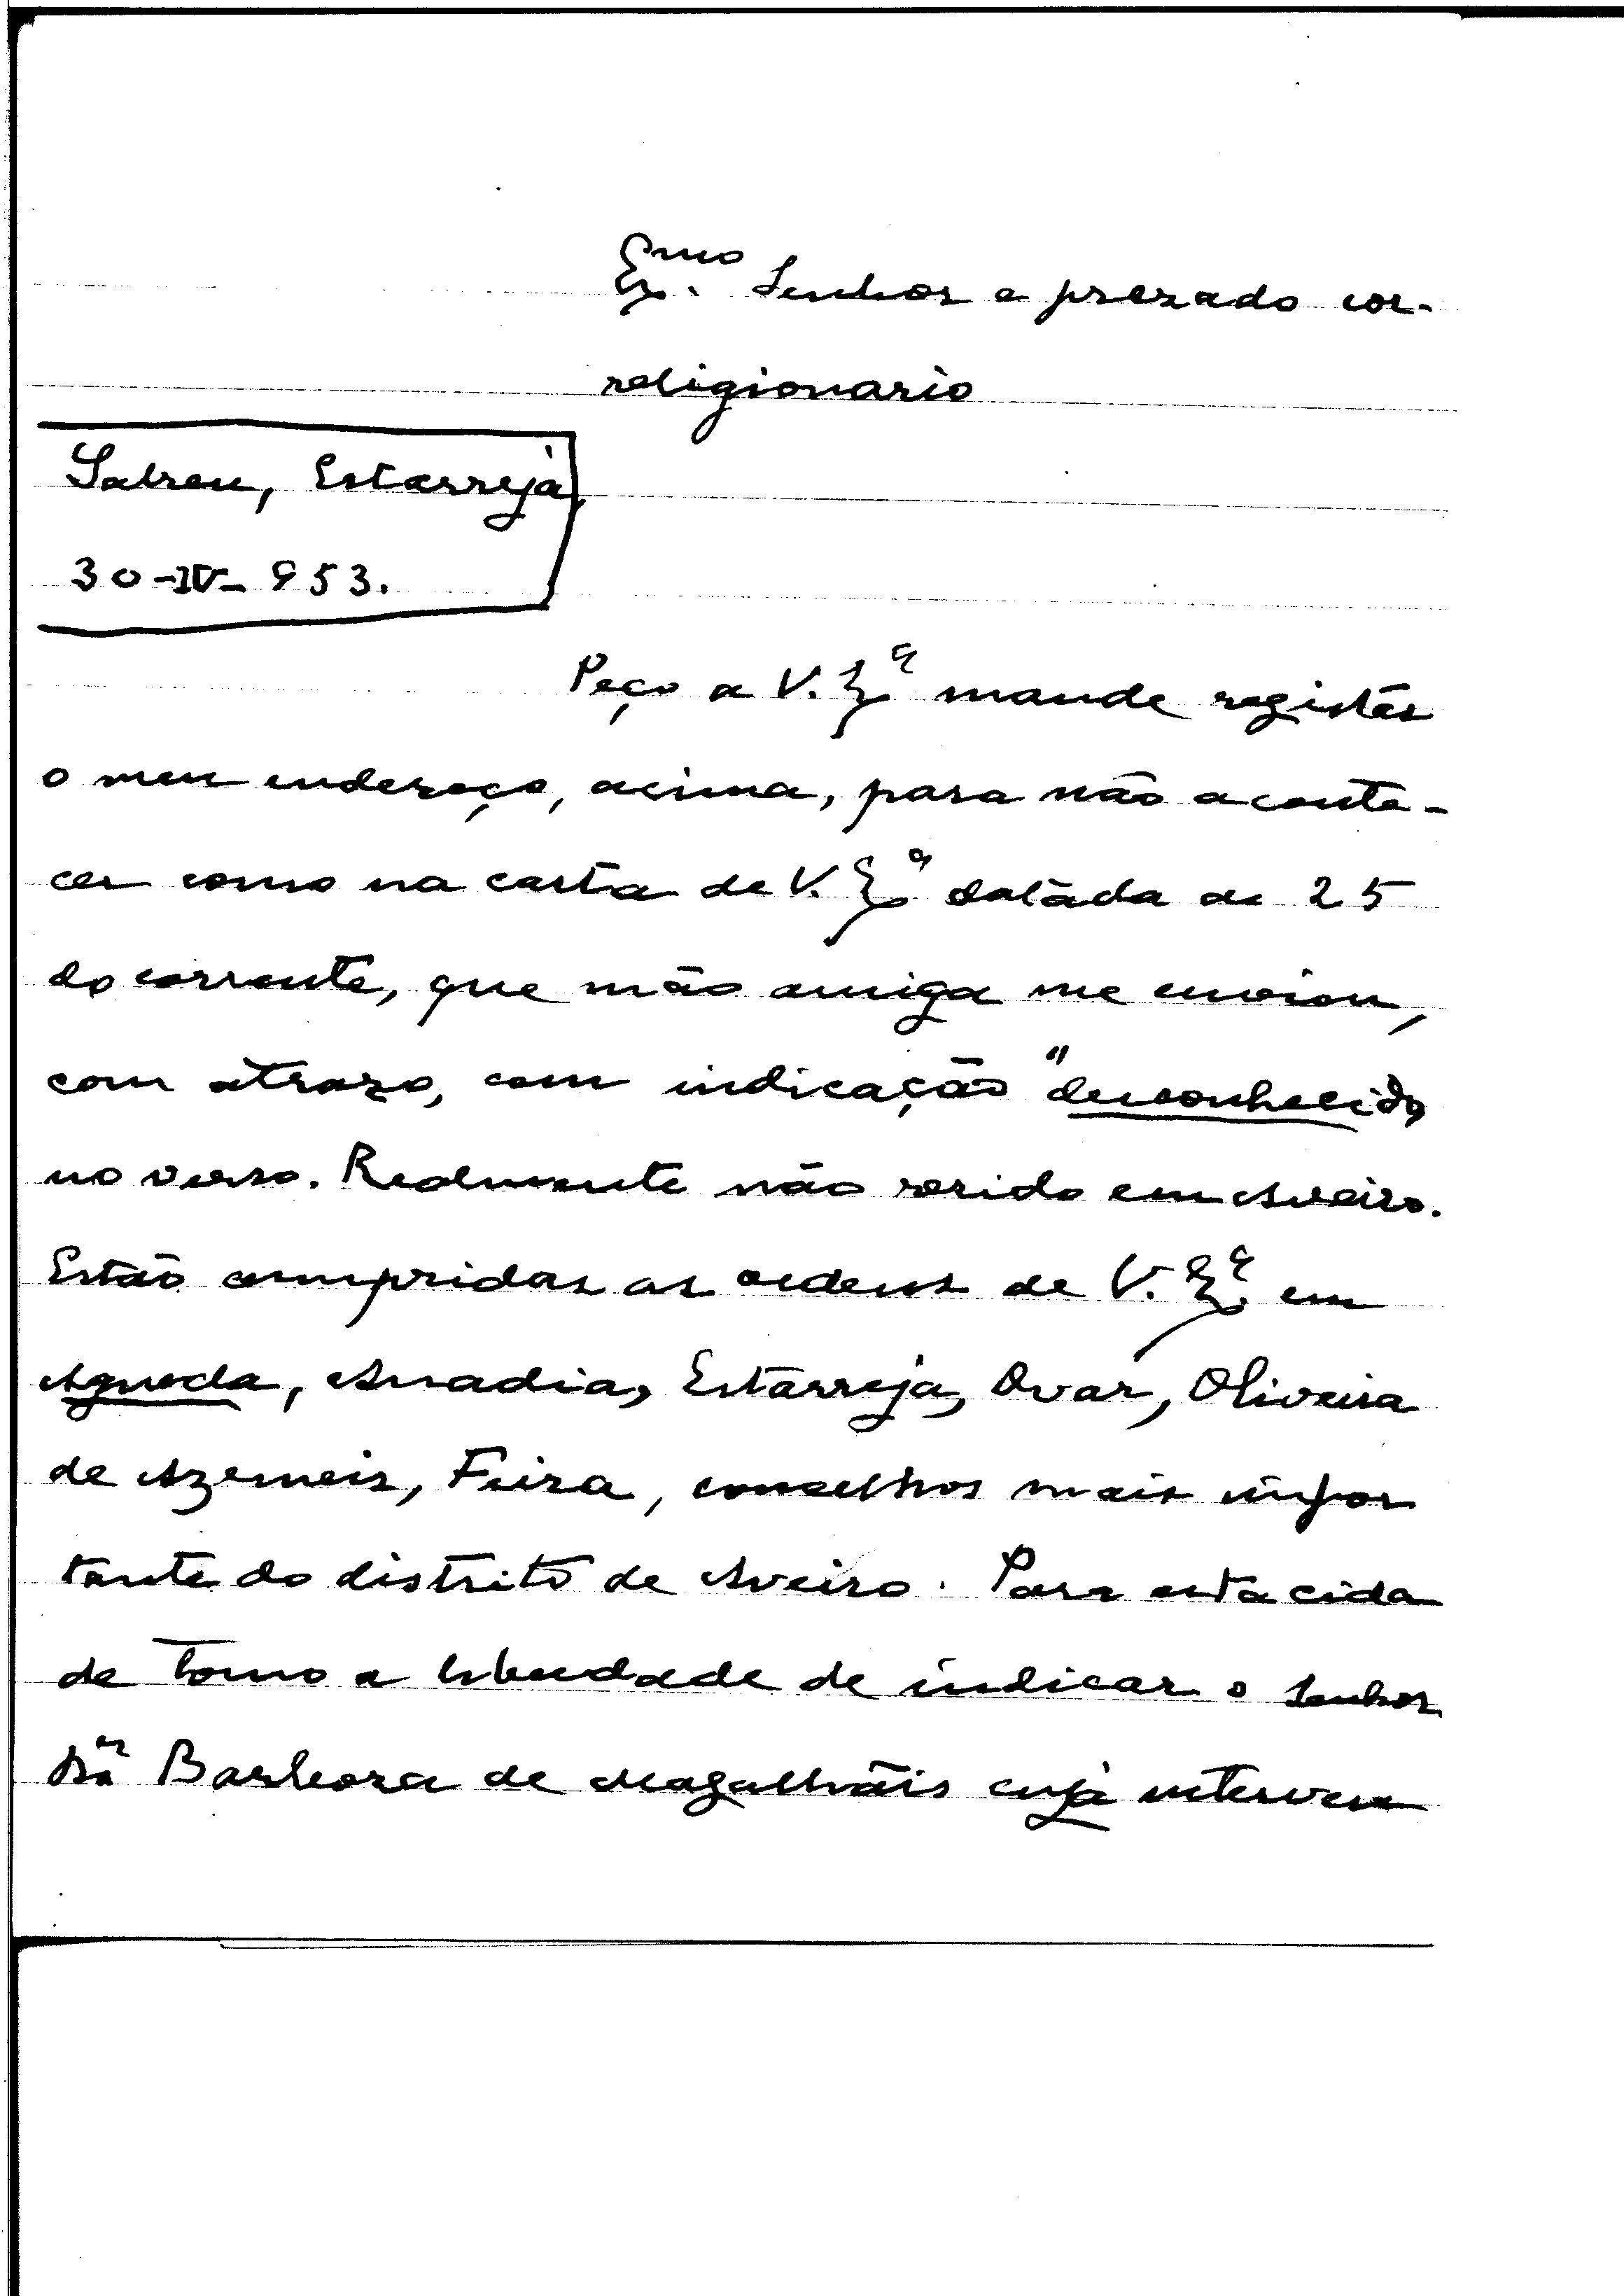 Ex.mo Senhor e prezado cor-
religionario
Salreu, Estarreja,
30-IV-953.
Peço a V. Ex.ª mande registár
o meu endereço, acima, para não aconte-
cer como na carta de V. Ex.ª datáda de 25
do corrente, que mão amiga me enviou,
com atrazo, com indicação "desconhecido,
no verso. Realmente não resido em Aveiro.
Estão cumpridas as ordens de V. Ex.ª em
Agueda, Anadia, Estarreja, Ovar, Oliveira
de Azemeis, Feira, concelhos mais impor
tante do distrito de Aveiro. Para esta cida
de tomo a liberdade de indicar o Senhor
Barbosa de Magalhãis cuja interven